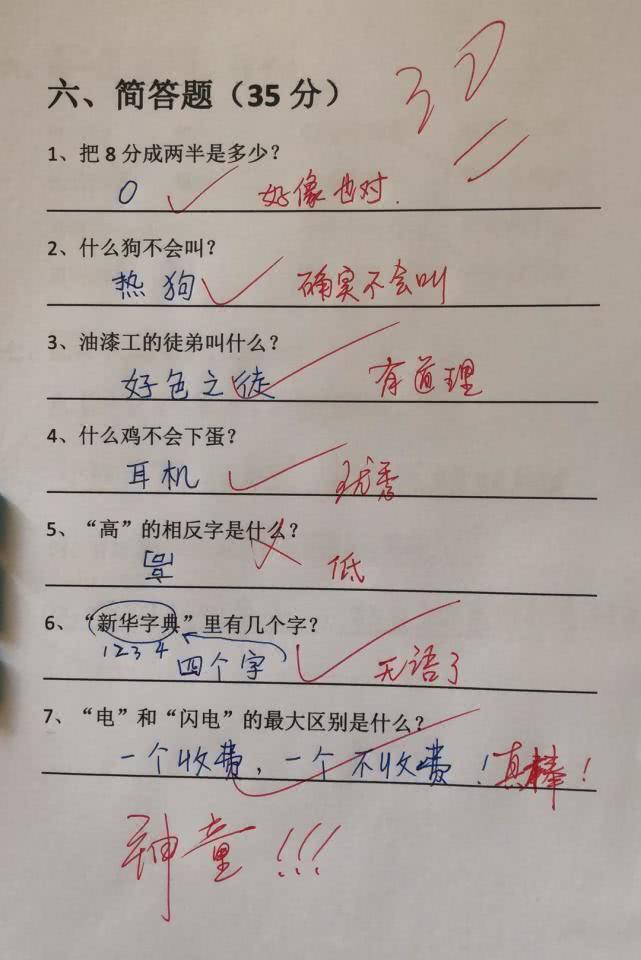 30
六、简答题（35 分）
1、把 8 分成两半是多少？
0 好像也对.
2、什么狗不会叫？
热狗 确实不会叫
3、油漆工的徒弟叫什么？
好色之徒 有道理
4、什么鸡不会下蛋？
耳机 优秀
5、“高”的相反字是什么？
低
6、“新华字典”里有几个字？
1 2 3 4 四个字 无语了
7、“电”和“闪电”的最大区别是什么？
一个收费，一个不收费！真棒！
神童！！！